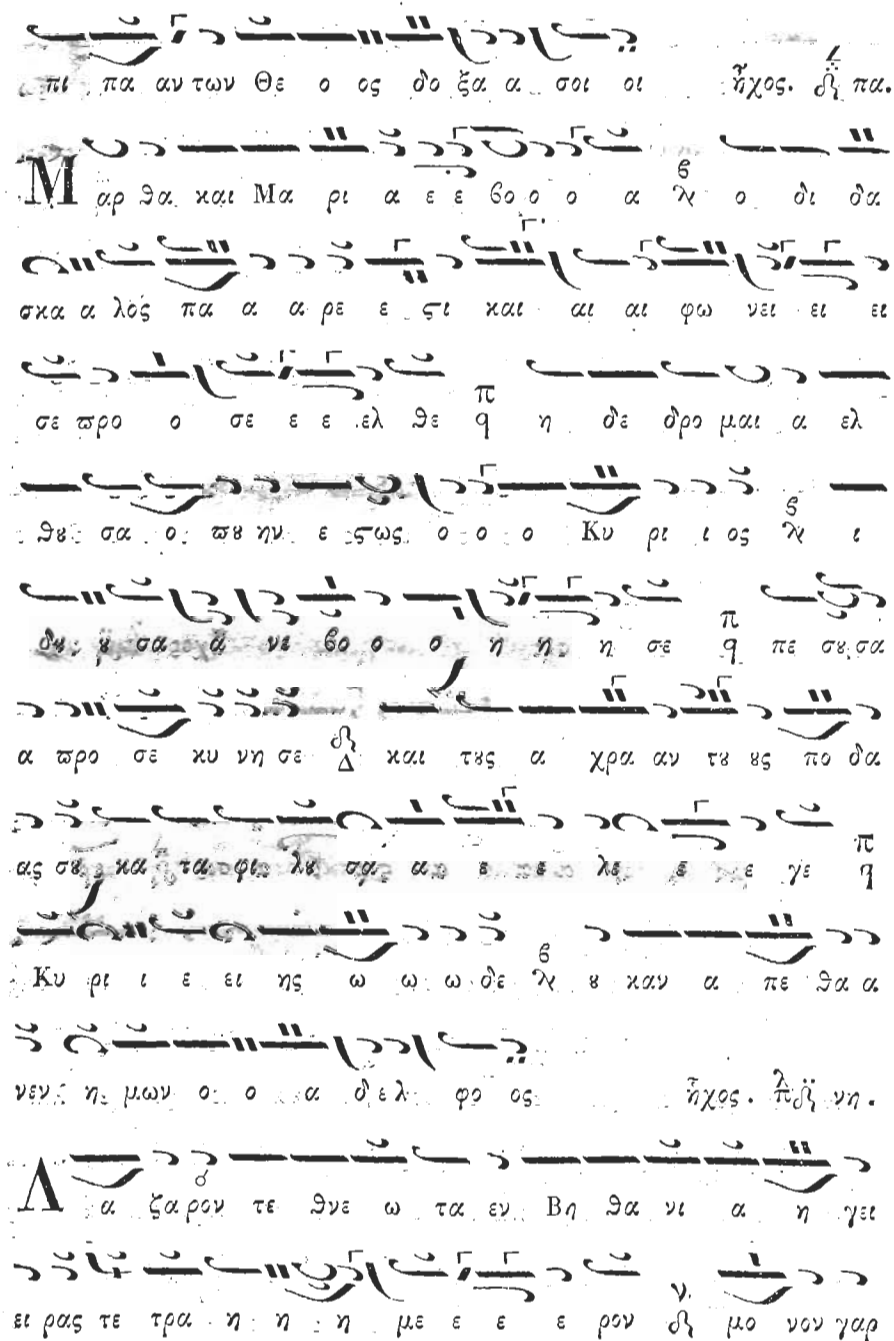 πι πα αν των Θε ο ος δο ξα α σοι οι ἦχος. πα.
Μ αρ θα και Μα ρι α ε ε βο ο ο α ο δι δα
σκα α λος πα α α ρε ε ϛι και αι αι φω νει ει ει
σε προ ο σε ε ε ελ θε η δε δρο μαι α ελ
θȣ σα ο πȣ ην ε ϛως ο ο ο Κυ ρι ι ος ι
δȣ ȣ σα α νε βο ο ο η η η σε πε σȣ σα
α προ σε κυ νη σε Δ και τȣς α χρα αν τȣ ȣς πο δα
ας σȣ κα τα φι λȣ σα α ε ε λε ε ε γε
Κυ ρι ι ε ει ης ω ω ω δε ȣ καν α πε θα α
νεν η μων ο ο α δ ελ φο ος ἦχος. νη.
Λ α ζα ρον τε θνε ω τα εν Βη θα νι α η γει
ει ρας τε τρα η η η με ε ε ε ρον μο νον γαρ